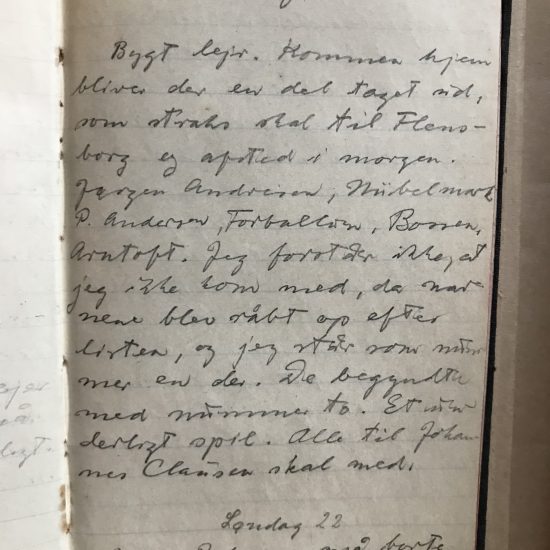 Bygt lejr. Kommen hjem
bliver der en del taget ud,
som straks skal til Flens-
borg og afsted i morgen.
Jørgen Andresen, Nübelmark
P. Andersen, Forballum, Bossen,
Arntoft. Jeg forstår ikke, at
jeg ikke kom med, da nav-
nene blev råbt op efter
listen, og jeg står som num-
mer en der. De begyndte
med nummer to. Et un-
derligt spil. Alle til Johan-
nes Clausen skal med.
Lørdag 22
må borte
ejer
ligt.